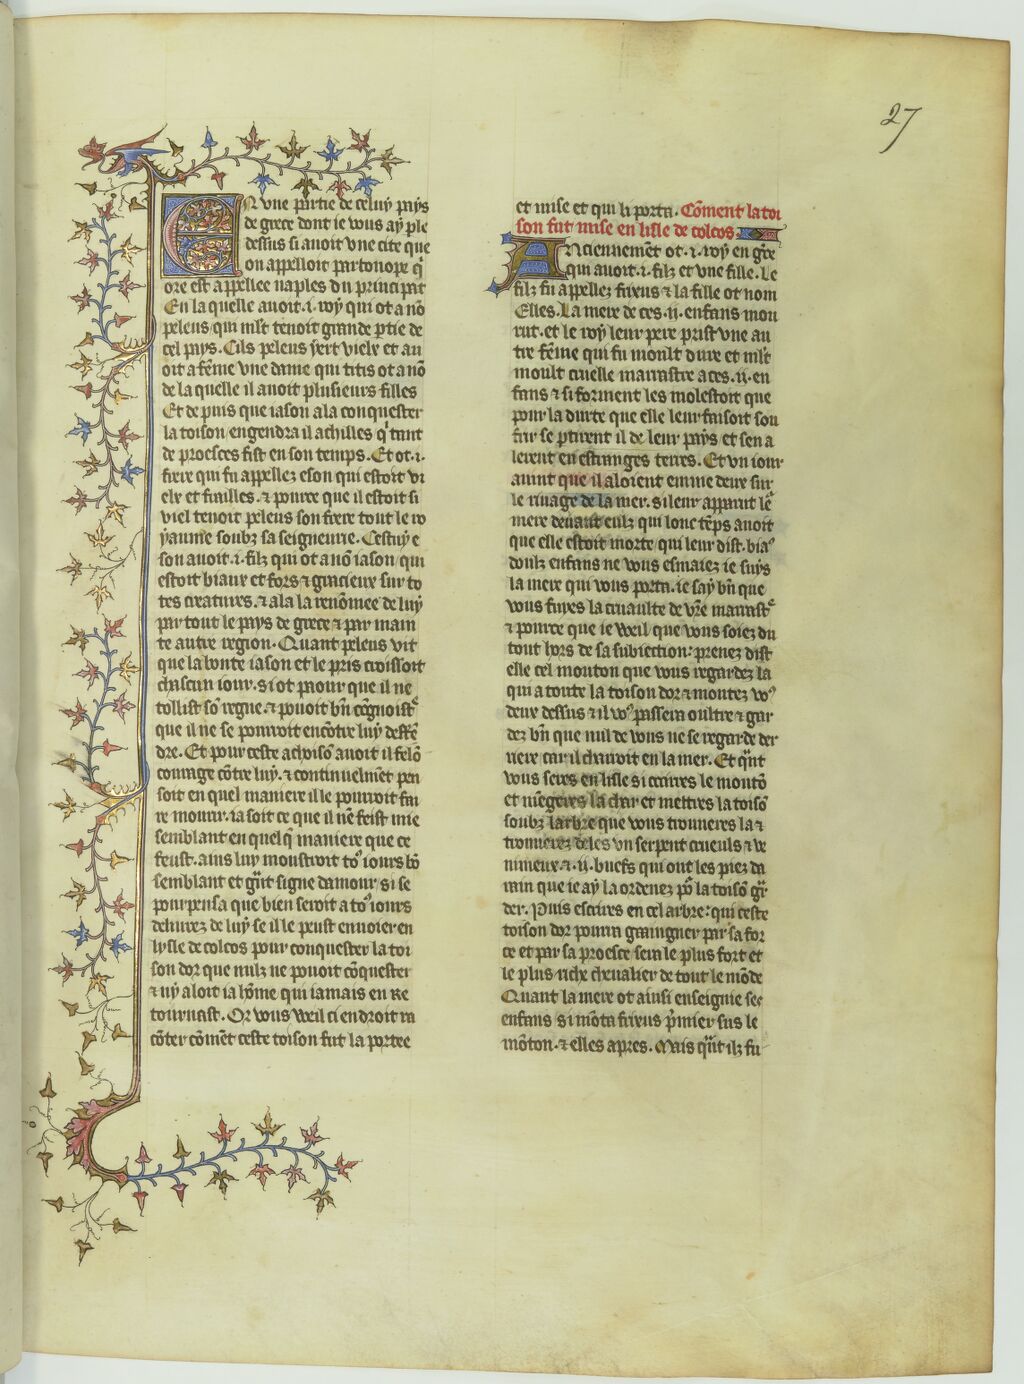 27
En vne partie de celuy pays
de grece dont ie vous ay ple
dessus si auoit vne cite que
on appelloit partonope q̄
ore est appellee naples ou principat
En la quelle auoit .i. roy qui ot a nō
peleus qui ml̄t tenoit grande ptie de
cel pays. Cils peleus yert vielx et au
oit a fēme vne dame qui titis ot a nō
de la quelle il auoit plusieurs filles
Et depuis que iason ala conquester
la toison engendra il achilles q̄ tant
de proesces fist en son temps. Et ot .i.
frere qui fu appellez eson qui estoit vi
elx et frailles. ⁊ pource que il estoit si
viel tenoit peleus son frere tout le ro
yaume soubz sa seigneurie. Cestuy e
son auoit .i. filz qui ot a nō iason qui
estoit biaux et fors ⁊ gracieux sur to
tes creatures. ⁊ ala la renōmee de luy
par tout le pays de grece ⁊ par main
te autre region. Quant peleus vit
que la bonte iason et le pris croissoit
chascun iour. si ot paour que il ne
tollist sō regne. ⁊ pouoit bn̄ cōgnoistᵉ
que il ne se pourroit encōtre luy deffē
dre. Et pour ceste achoisō auoit il felō
courage cōtre luy. ⁊ continuelmēt pen
soit en quel maniere il le pourroit fai
re mourir. ia soit ce que il nē feist mie
semblant en quelq̄ maniere que ce
feust. ains luy moustroit toꝰ iours bō
semblant et gr̄it signe damour. si se
pourpensa que bien seroit a toꝰ iours
deliurez de luy se il le peust enuoier en
lysle de colcos pour conquester la toi
son dor que nulz ne pouoit cōquester
⁊ ny aloit ia hōme qui iamais en re
tournast. Or vous vueil ci endroit ra
cōter cōmēt ceste toison fut la portee
et mise et qui li porta. Cōment la toi
son fut mise en lisle de colcos.
Anciennemēt ot .i. roy en gr̄ce
qui auoit .i. filz et vne fille. Le
filz fu appellez frixus ⁊ la fille ot nom
Elles. La mere de ces .ii. enfans mou
rut. et le roy leur pere prist vne au
tre fēme qui fu moult dure et ml̄t
moult cruelle marrastre a ces .ii. en
fans ⁊ si forment les molestoit que
pour la durte que elle leur faisoit sou
frir se ptirent il de leur pays et sen a
lerent en estranges terres. Et vn iour
auint que il aloient eulx deux sur
le riuage de la mer. si leur apparut le
mere deuant eulz qui lonc tēps auoit
que elle estoit morte qui leur dist. biaꝰ
doulz enfans ne vous esmaiez ie suys
la mere qui vous porta. ie say bn̄ que
vous fuyes la cruaulte de vr̄e marrastᵉ
⁊ pource que ie vueil que vous soiez du
tout hors de sa subiection: prenez dist
elle cel mouton que vous regardez la
qui a toute la toison dor ⁊ montez voꝰ
deux dessus ⁊ il voꝰ passera oultre ⁊ gar
dez bn̄ que nul de vous ne se regarde der
riere car il charroit en la mer. Et qn̄t
vous seres en lisle si tueres le moutō
et mēgeres la char et mettres la toisō
soubz larbre que vous trouueres la ⁊
trouuerez deles vn serpent crueuls ⁊ ve
nimeux. ⁊ .ii. buefs qui ont les piez da
rain que ie ay la ordenez pō la toisō gr̄
der. Puis escrires en cel arbre: qui ceste
toison dor pourra graingner par sa for
ce et par sa proesce sera le plus fort et
le plus riche cheualier de tout le mōde
Quant la mere ot ainsi enseignie ses
enfans si mōta frixus p̄mier sus le
mōton. ⁊ elles apres. Mais qn̄t ilz fu